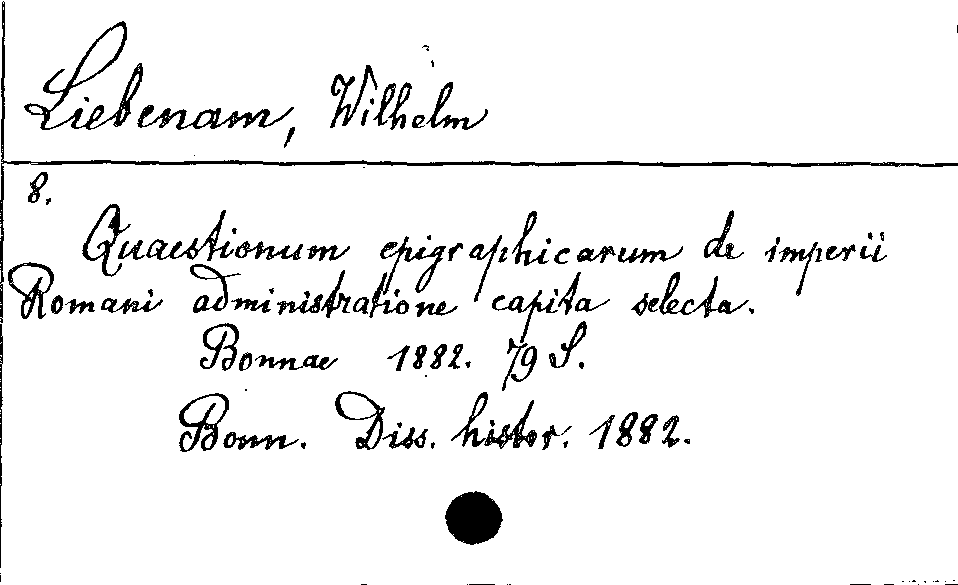 Liebenam, Wilhelm
8.
Quaestionum epigraphicarum de imperii
Romani administratione capita selecta.
Bonnae 1882. 79 S.
Bonn. Diss. histor. 1882.